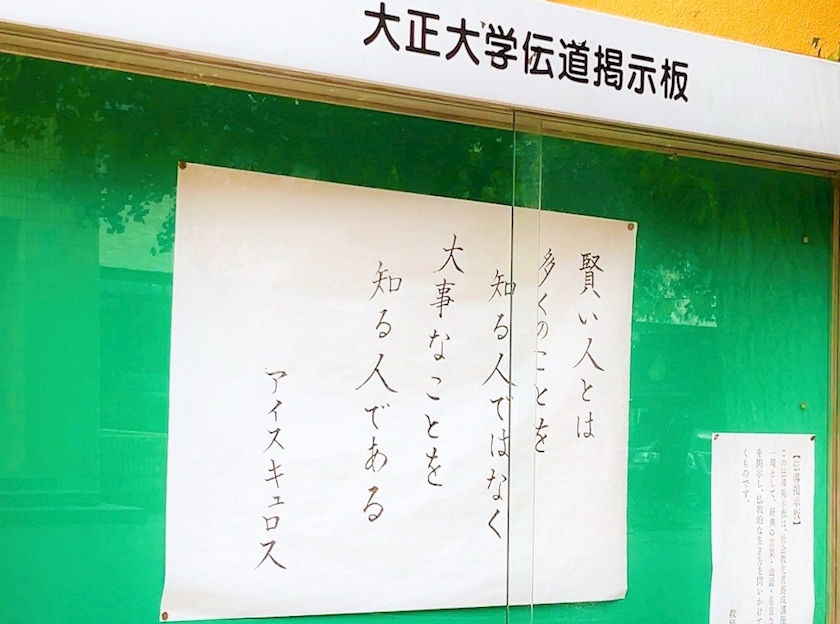 大正大学伝道掲示板
賢い人とは
多くのことを
知る人ではなく
大事なことを
知る人である
アイスキュロス
【伝導掲示板】
この伝導掲示板は、社会教化者養成講座
一環として、経典の言葉・法語・名言な
を掲示し、仏教的な生き方を問いかけて
くものです。